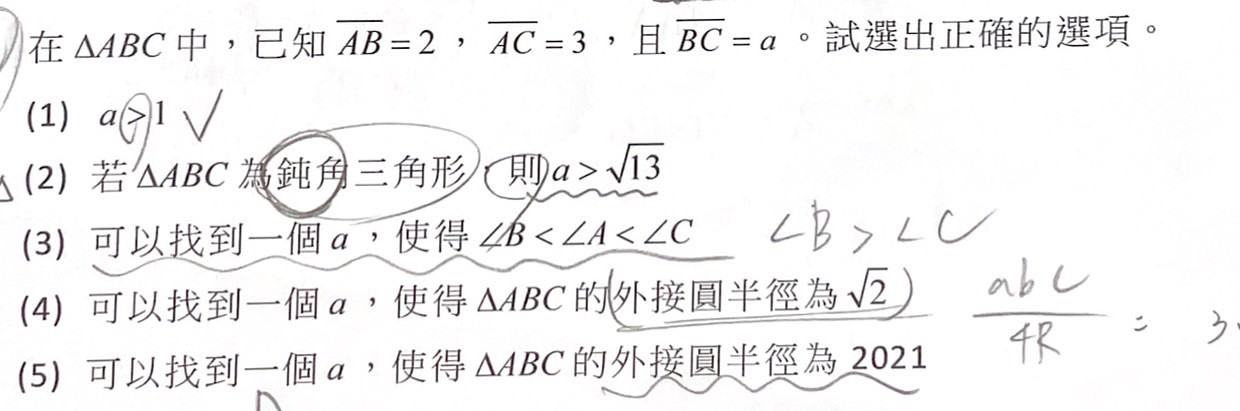 在 ΔABC 中，已知 AB = 2 ， AC = 3 ，且 BC = a 。試選出正確的選項。
(1) a > 1 ✓
(2) 若 ΔABC 為鈍角三角形，則 a > √13
(3) 可以找到一個 a ，使得 ∠B < ∠A < ∠C ∠B > ∠C
(4) 可以找到一個 a ，使得 ΔABC 的外接圓半徑為 √2 abc/4R = 3
(5) 可以找到一個 a ，使得 ΔABC 的外接圓半徑為 2021